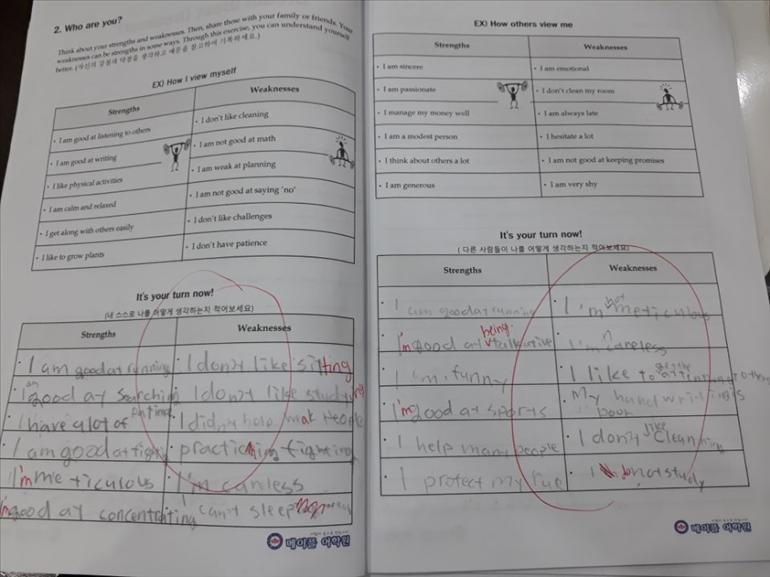 2. Who are you?
Think about your strengths and weaknesses. Then, share those with your family or friends. Your
weaknesses can be strengths in some ways. Through this exercise, you can understand yourself
better. (자신의 강점과 약점을 생각하고 예문을 참고하여 기록하세요.)
EX) How I view myself
Strengths
Weaknesses
• I am good at listening to others
• I don't like cleaning
• I am good at writing
• I am not good at math
• I like physical activities
• I am weak at planning
• I am calm and relaxed
• I am not good at saying 'no'
• I get along with others easily
• I don't like challenges
• I like to grow plants
• I don't have patience
It's your turn now!
(내 스스로 나를 어떻게 생각하는지 적어보세요)
Strengths
Weaknesses
I am good at running
I don't like sitting
I am good at searching
I don't like studying
I have a lot of
I didn't help weak people
I am good at
practicing fighting
I'm meticulous
I'm careless
I'm good at concentrating
can't sleep
메이플 어학원
EX) How others view me
Strengths
Weaknesses
• I am sincere
• I am emotional
• I am passionate
• I don't clean my room
• I manage my money well
• I am always late
• I am a modest person
• I hesitate a lot
• I think about others a lot
• I am not good at keeping promises
• I am generous
• I am very shy
It's your turn now!
(다른 사람들이 나를 어떻게 생각하는지 적어보세요)
Strengths
Weaknesses
I am good at running
I'm not meticulous
I'm good at being talkative
I'm careless
I'm funny
I like to
I'm good at sports
My hand writting is
I help many people
I don't like cleaning
I protect my
I not study
메이플 어학원